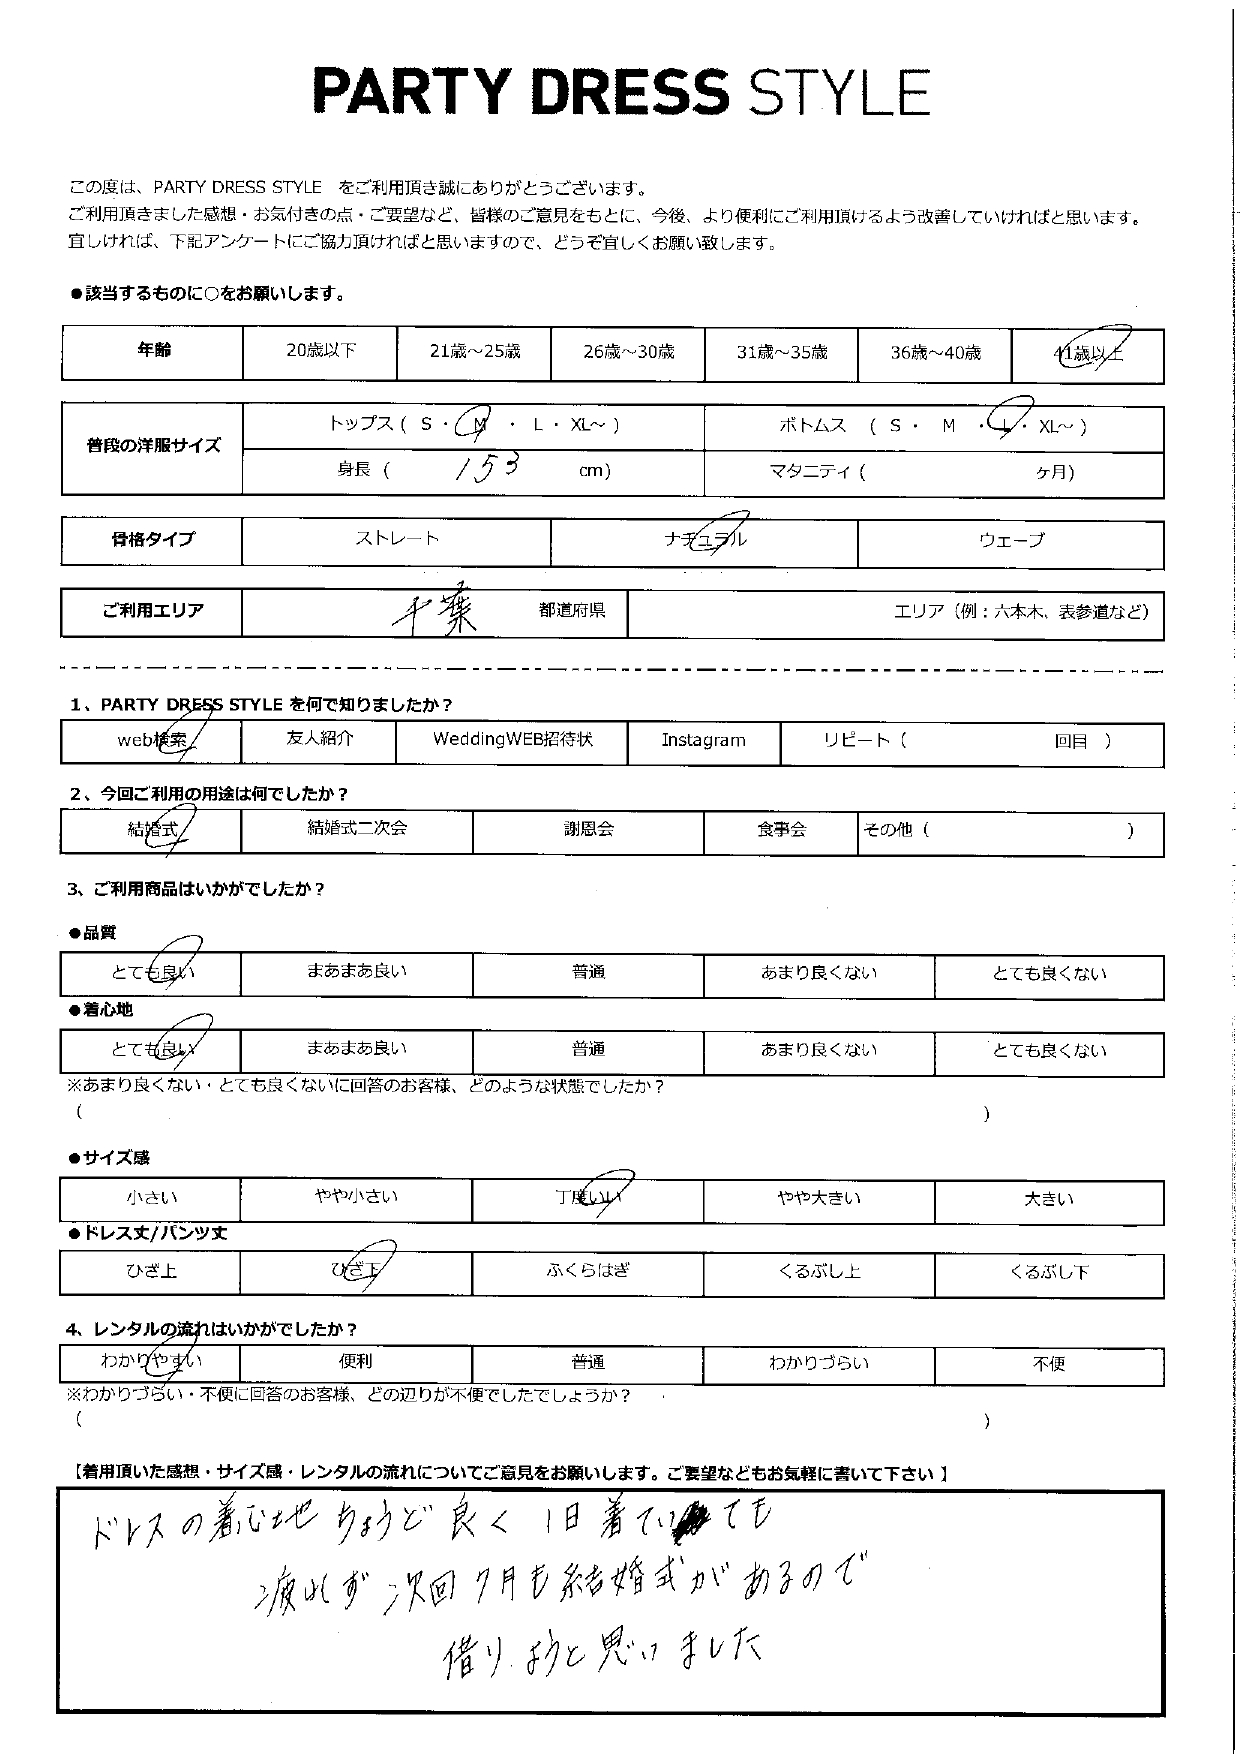 PARTY DRESS STYLE
この度は、PARTY DRESS STYLE をご利用頂き誠にありがとうございます。
ご利用頂きました感想・お気付きの点・ご要望など、皆様のご意見をもとに、今後、より便利にご利用頂けるよう改善していければと思います。
宜しければ、下記アンケートにご協力頂ければと思いますので、どうぞ宜しくお願い致します。
●該当するものに○をお願いします。
年齢 20歳以下 21歳～25歳 26歳～30歳 31歳～35歳 36歳～40歳 41歳以上
普段の洋服サイズ トップス ( S ・ M ・ L ・ XL～ ) ボトムス ( S ・ M ・ L ・ XL～ )
身長 ( 153 cm) マタニティ ( ヶ月)
骨格タイプ ストレート ナチュラル ウェーブ
ご利用エリア 千葉 都道府県 エリア（例：六本木、表参道など）
1、PARTY DRESS STYLE を何で知りましたか？
web検索 友人紹介 WeddingWEB招待状 Instagram リピート ( 回目 )
2、今回ご利用の用途は何でしたか？
結婚式 結婚式二次会 謝恩会 食事会 その他 ( )
3、ご利用商品はいかがでしたか？
●品質
とても良い まあまあ良い 普通 あまり良くない とても良くない
●着心地
とても良い まあまあ良い 普通 あまり良くない とても良くない
※あまり良くない・とても良くないに回答のお客様、どのような状態でしたか？
( )
●サイズ感
小さい やや小さい 丁度いい やや大きい 大きい
●ドレス丈/パンツ丈
ひざ上 ひざ下 ふくらはぎ くるぶし上 くるぶし下
4、レンタルの流れはいかがでしたか？
わかりやすい 便利 普通 わかりづらい 不便
※わかりづらい・不便に回答のお客様、どの辺りが不便でしたでしょうか？
( )
【着用頂いた感想・サイズ感・レンタルの流れについてご意見をお願いします。ご要望などもお気軽に書いて下さい 】
ドレスの着心地 ちょうど良く 1日着ていても
疲れず 次回7月も結婚式があるので
借りようと思いました